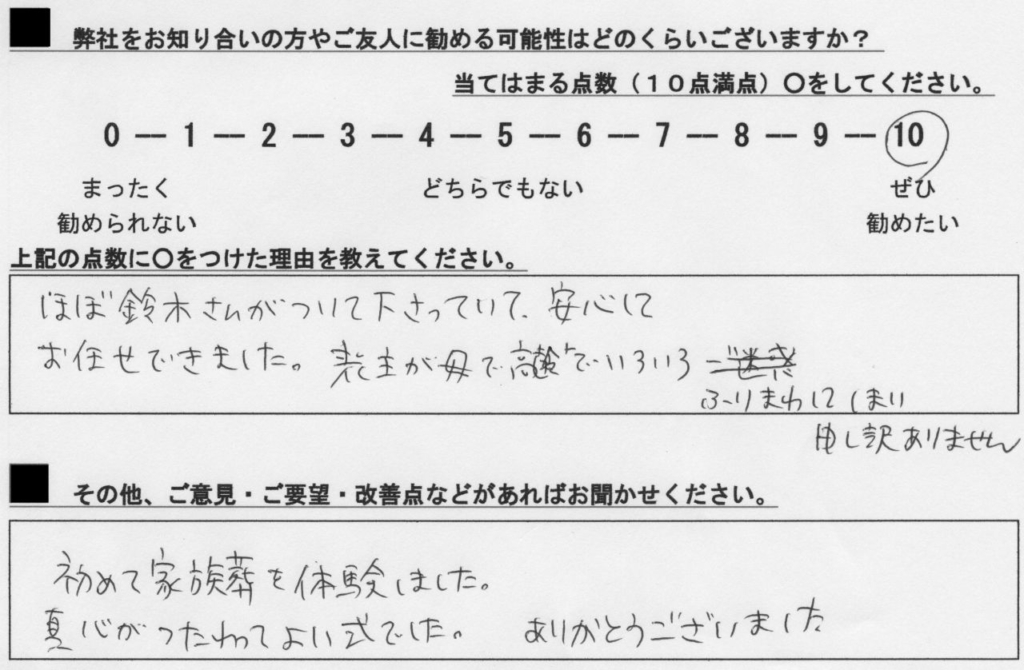 弊社をお知り合いの方やご友人に勧める可能性はどのくらいございますか？
当てはまる点数（１０点満点）〇をしてください。
0 ― 1 ― 2 ― 3 ― 4 ― 5 ― 6 ― 7 ― 8 ― 9 ― 10
まったく どちらでもない ぜひ
勧められない 勧めたい
上記の点数に〇をつけた理由を教えてください。
ほぼ鈴木さんがついて下さっていて、安心して
お任せできました。喪主が母で高齢でいろいろ ご迷惑
ふりまわしてしまい
申し訳ありません
その他、ご意見・ご要望・改善点などがあればお聞かせください。
初めて家族葬を体験しました。
真心がつたわってよい式でした。 ありがとうございました